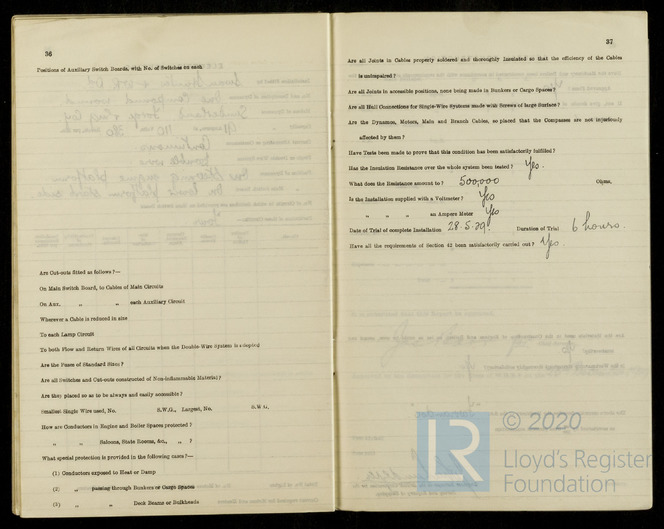 36
Positions of Auxiliary Switch Boards, with No. of Switches on each
Are Cut-outs fitted as follows?—
On Main Switch Board, to Cables of Main Circuits
On Aux. „ „ each Auxiliary Circuit
Wherever a Cable is reduced in size
To each Lamp Circuit
To both Flow and Return Wires of all Circuits when the Double-Wire System is adopted
Are the Fuses of Standard Sizes?
Are all Switches and Cut-outs constructed of Non-inflammable Material?
Are they placed so as to be always and easily accessible?
Smallest Single Wire used, No. S.W.G., Largest, No. S.W.G.
How are Conductors in Engine and Boiler Spaces protected?
„ „ Saloons, State Rooms, &c., „ ?
What special protection is provided in the following cases?—
(1) Conductors exposed to Heat or Damp
(2) „ passing through Bunkers or Cargo Spaces
(3) „ „ Deck Beams or Bulkheads
37
Are all Joints in Cables properly soldered and thoroughly Insulated so that the efficiency of the Cables
is unimpaired?
Are all Joints in accessible positions, none being made in Bunkers or Cargo Spaces?
Are all Hull Connections for Single-Wire Systems made with Screws of large Surface?
Are the Dynamos, Motors, Main and Branch Cables, so placed that the Compasses are not injuriously
affected by them?
Have Tests been made to prove that this condition has been satisfactorily fulfilled?
Has the Insulation Resistance over the whole system been tested? Yes.
What does the Resistance amount to? 500,000 Ohms.
Is the Installation supplied with a Voltmeter? Yes
„ „ „ an Ampere Meter Yes
Date of Trial of complete Installation 28.5.29 Duration of Trial 6 hours.
Have all the requirements of Section 42 been satisfactorily carried out? Yes.
LR
© 2020
Lloyd's Register
Foundation